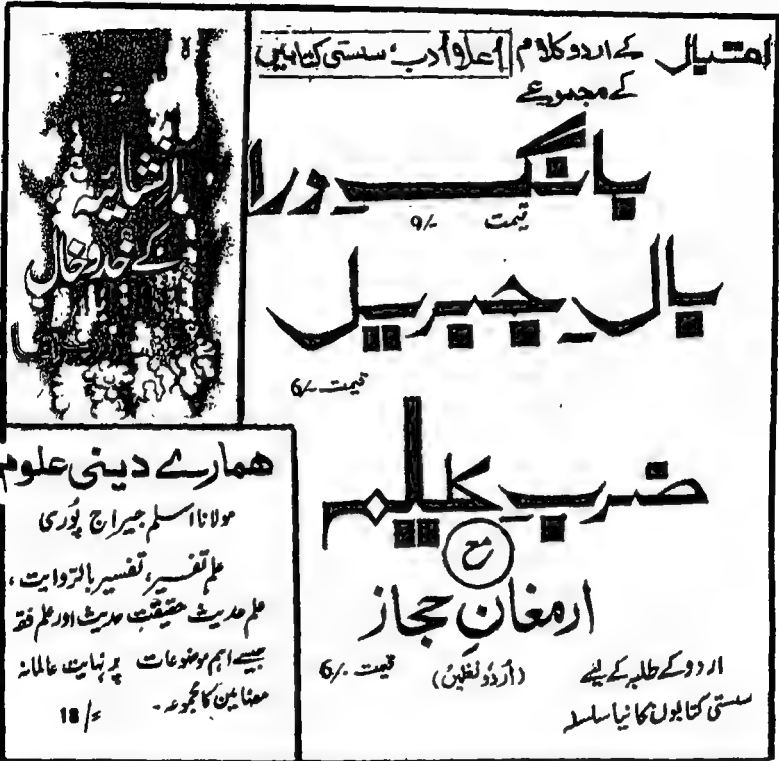 اقبال کے اردو کلام اعلا ادب، سستی کتابیں
کے مجموعے
بانگِ درا
قیمت 9/-
بالِ جبریل
قیمت 6/-
ضربِ کلیم
مع
ارمغانِ حجاز
(اُردو نظمیں) قیمت 6/-
اردو کے طلبہ کے لیے
سستی کتابوں کا نیا سلسلہ
انشائیہ
کے خدوخال
ہمارے دینی علوم
مولانا اسلم جیراج پُوری
علم تفسیر، تفسیر بالرّوایت،
علم حدیث حقیقتِ حدیث اور علم فقہ
جیسے اہم موضوعات پر نہایت عالمانہ
مضامین کا مجموعہ۔
18/=